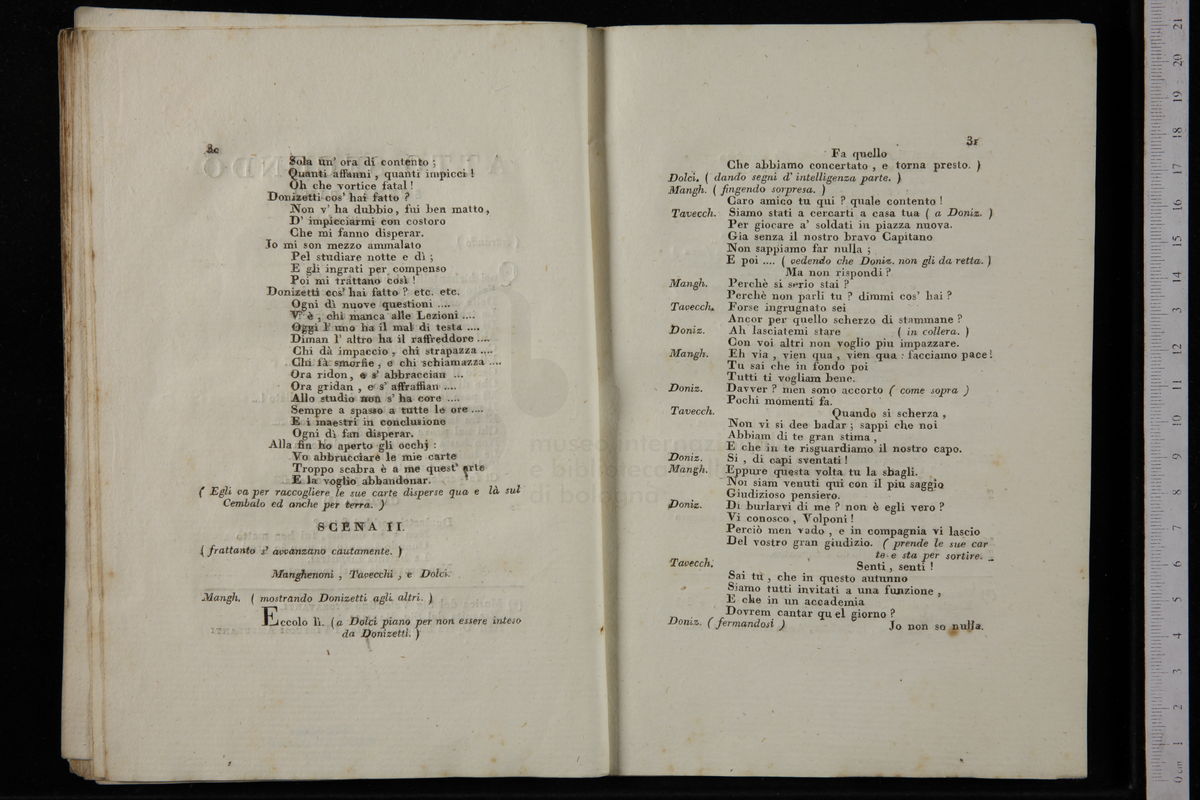 30
Sola un' ora di contento ;
Quanti affanni , quanti impicci !
Oh che vortice fatal !
Donizetti cos' hai fatto ?
Non v' ha dubbio, fui ben matto,
D' impicciarmi con costoro
Che mi fanno disperar.
Jo mi son mezzo ammalato
Pel studiare notte e dì ;
E gli ingrati per compenso
Poi mi trattano così !
Donizetti cos' hai fatto ? etc. etc.
Ogni dì nuove questioni ....
V' è , chi manca alle Lezioni ....
Oggi l' uno ha il mal di testa ....
Diman l' altro ha il raffreddore ....
Chi dà impaccio , chi strapazza ....
Chi fà smorfie , e chi schiamazza ....
Ora ridon, e s' abbraccian ...
Ora gridan , e s' affraffian ....
Allo studio non s' ha core ....
Sempre a spasso a tutte le ore ....
E i maestri in conclusione
Ogni dì fan disperar.
Alla fin ho aperto gli occhj :
Vo abbrucciare le mie carte
Troppo scabra è a me quest' arte
E la voglio abbandonar.
( Egli va per raccogliere le sue carte disperse qua e là sul
Cembalo ed anche per terra. )
SCENA II.
( frattanto s' avvanzano cautamente. )
Manghenoni , Tavecchi , e Dolci.
Mangh. ( mostrando Donizetti agli altri. )
Eccolo lì. ( a Dolci piano per non essere inteso
da Donizetti. )
31
Fa quello
Che abbiamo concertato , e torna presto. )
Dolci. ( dando segni d' intelligenza parte. )
Mangh. ( fingendo sorpresa. )
Caro amico tu qui ? quale contento !
Tavecch. Siamo stati a cercarti a casa tua ( a Doniz. )
Per giocare a' soldati in piazza nuova.
Gia senza il nostro bravo Capitano
Non sappiamo far nulla ;
E poi .... ( vedendo che Doniz. non gli da retta. )
Ma non rispondi ?
Mangh. Perchè si serio stai ?
Perchè non parli tu ? dimmi cos' hai ?
Tavecch. Forse ingrugnato sei
Ancor per quello scherzo di stammane ?
Doniz. Ah lasciatemi stare ( in collera. )
Con voi altri non voglio piu impazzare.
Mangh. Eh via , vien qua , vien qua : facciamo pace !
Tu sai che in fondo poi
Tutti ti vogliam bene.
Doniz. Davver ? men sono accorto ( come sopra )
Pochi momenti fa.
Tavecch. Quando si scherza ,
Non vi si dee badar ; sappi che noi
Abbiam di te gran stima ,
E che in te risguardiamo il nostro capo.
Doniz. Si , di capi sventati !
Mangh. Eppure questa volta tu la sbagli.
Noi siam venuti qui con il piu saggio
Giudizioso pensiero.
Doniz. Di burlarvi di me ? non è egli vero ?
Vi conosco , Volponi !
Perciò men vado , e in compagnia vi lascio
Del vostro gran giudizio. ( prende le sue car
te e sta per sortire.
Tavecch. Senti , senti !
Sai tu , che in questo autunno
Siamo tutti invitati a una funzione ,
E che in un accademia
Dovrem cantar quel giorno ?
Doniz. ( fermandosi ) Jo non so nulla.